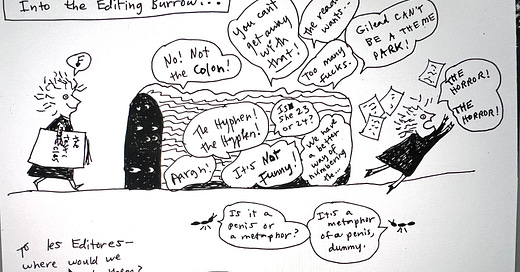 Into the Editing Burrow...
E
No! Not
the Colon!
You can't
get away
with
that!
The reader
wants...
Too many
fucks.
Gilead CAN'T
BE A THEME
PARK!
THE
HORROR!
THE
HORROR!
The Hyphen!
the Hyphen!
Is
she 23
or 24?
Aargh!
It's Not
Funny!
We have
a better
way of
numbering
the...
Is it a
penis or
a metaphor?
It's a
metaphor
of a penis,
dummy.
To les Editores—
where would we